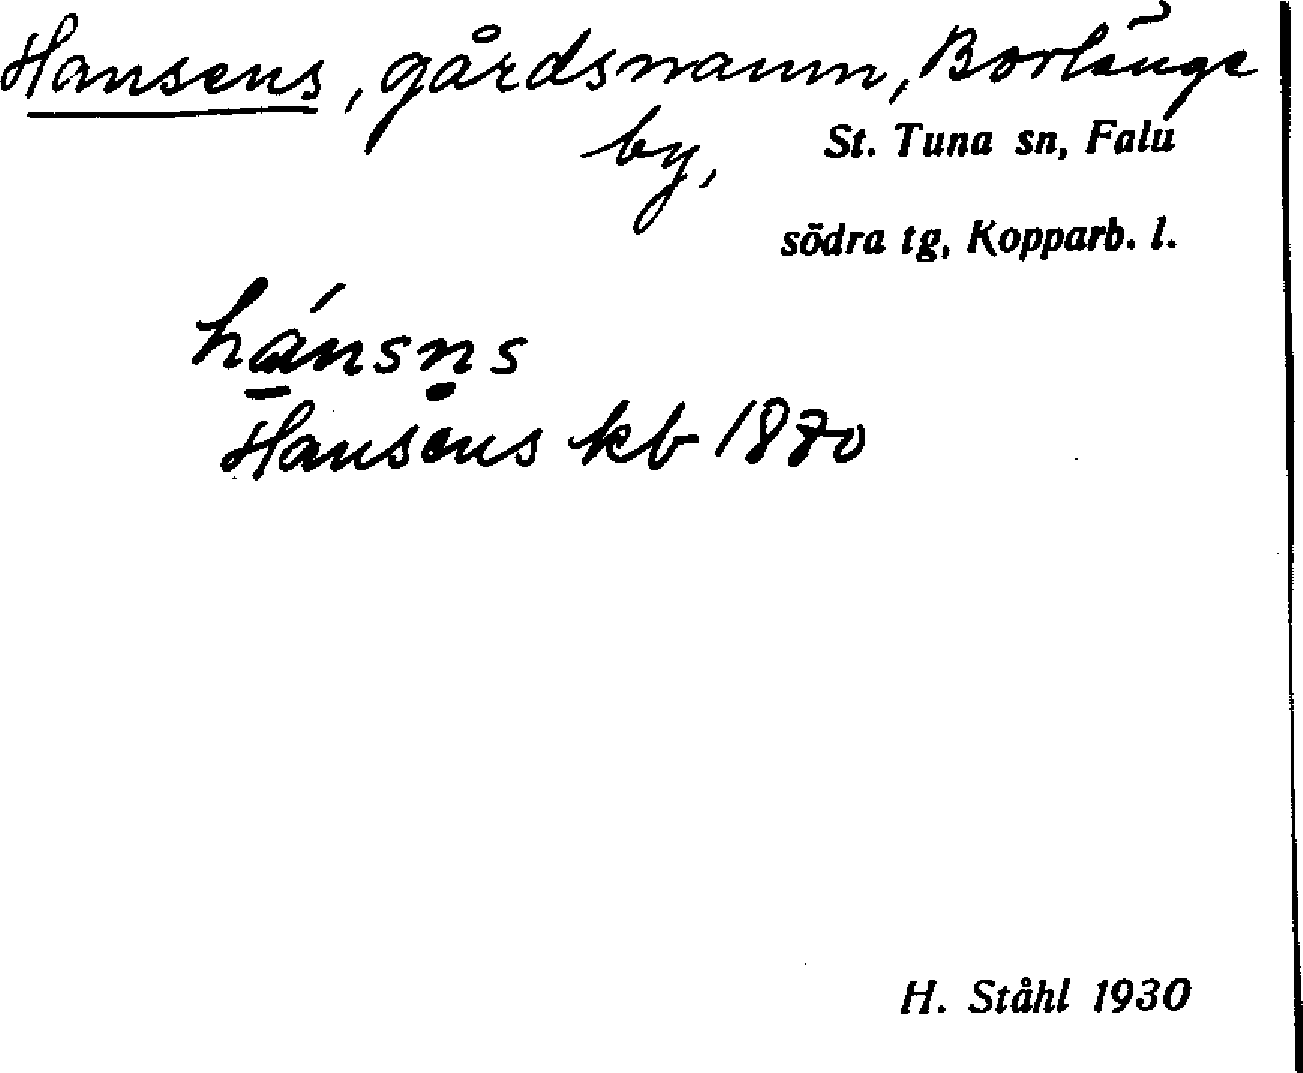 Hansens, gårdsnamn, Borlänge
by, St. Tuna sn, Falu
södra tg, Kopparb. l.
hánsn̥s
Hansens kb 1870
H. Ståhl 1930